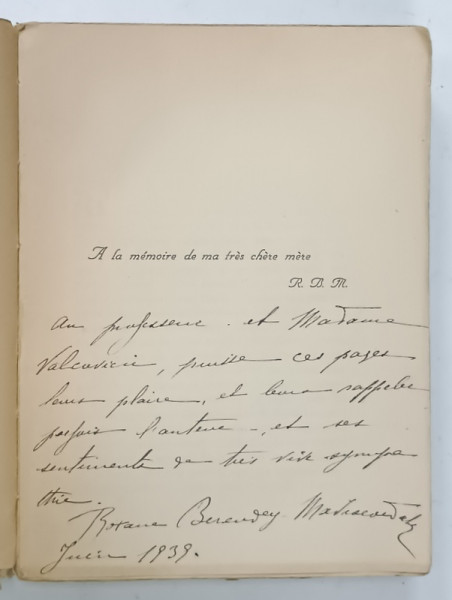 A la mémoire de ma très chère mère
R. B. M.
Au professeur et Madame
Valcovici, puisse ces pages
leurs plaire, et leurs rappeler
parfois l'auteur -, et ses
sentiments de très vive sympa
thie.
Roxane Berendey
Juin 1939.